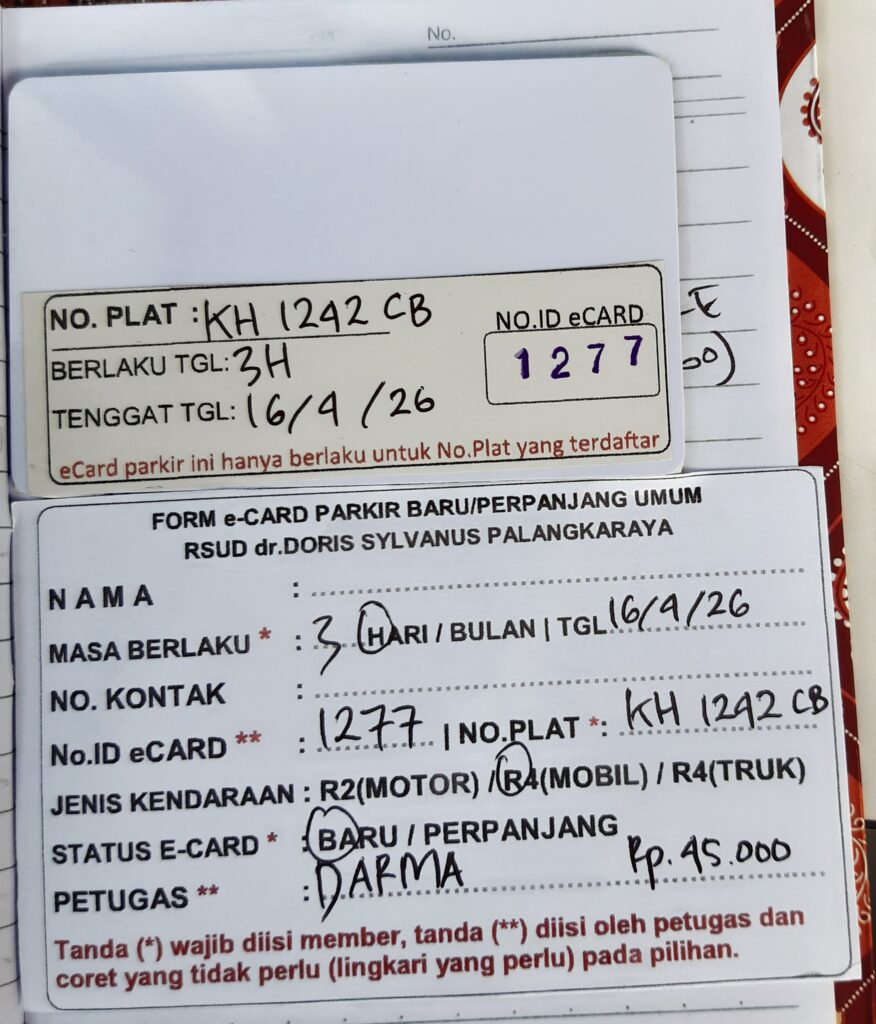 No.
NO. PLAT : KH 1242 CB
NO.ID eCARD
BERLAKU TGL: 3H
1277
TENGGAT TGL: 16/4/26
eCard parkir ini hanya berlaku untuk No.Plat yang terdaftar
FORM e-CARD PARKIR BARU/PERPANJANG UMUM
RSUD dr.DORIS SYLVANUS PALANGKARAYA
NAMA :
MASA BERLAKU * : 3 HARI / BULAN | TGL 16/4/26
NO. KONTAK :
No.ID eCARD ** : 1277 | NO.PLAT *: KH 1242 CB
JENIS KENDARAAN : R2(MOTOR) / R4(MOBIL) / R4(TRUK)
STATUS E-CARD * : BARU / PERPANJANG
PETUGAS ** : DARMA Rp. 45.000
Tanda (*) wajib diisi member, tanda (**) diisi oleh petugas dan
coret yang tidak perlu (lingkari yang perlu) pada pilihan.